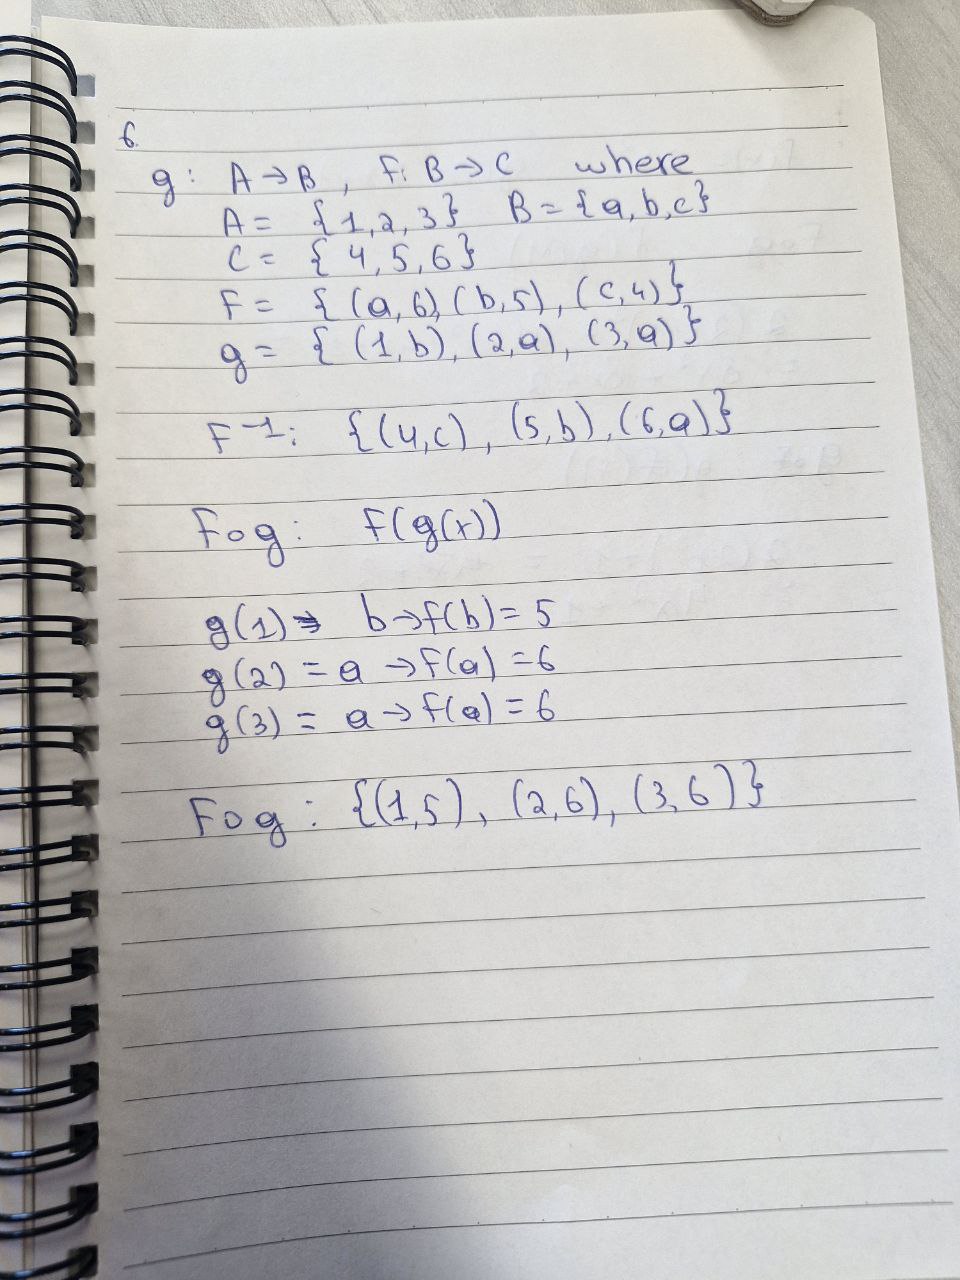 6.
g: A→B, F: B→C where
A = {1,2,3} B = {a,b,c}
C = {4,5,6}
F = {(a,6) (b,5), (c,4)}
g = {(1,b), (2,a), (3,a)}
F⁻¹: {(4,c), (5,b), (6,a)}
Fog: F(g(x))
g(1)→ b→f(b)=5
g(2) = a →f(a) =6
g(3) = a→f(a)=6
Fog: {(1,5), (2,6), (3,6)}